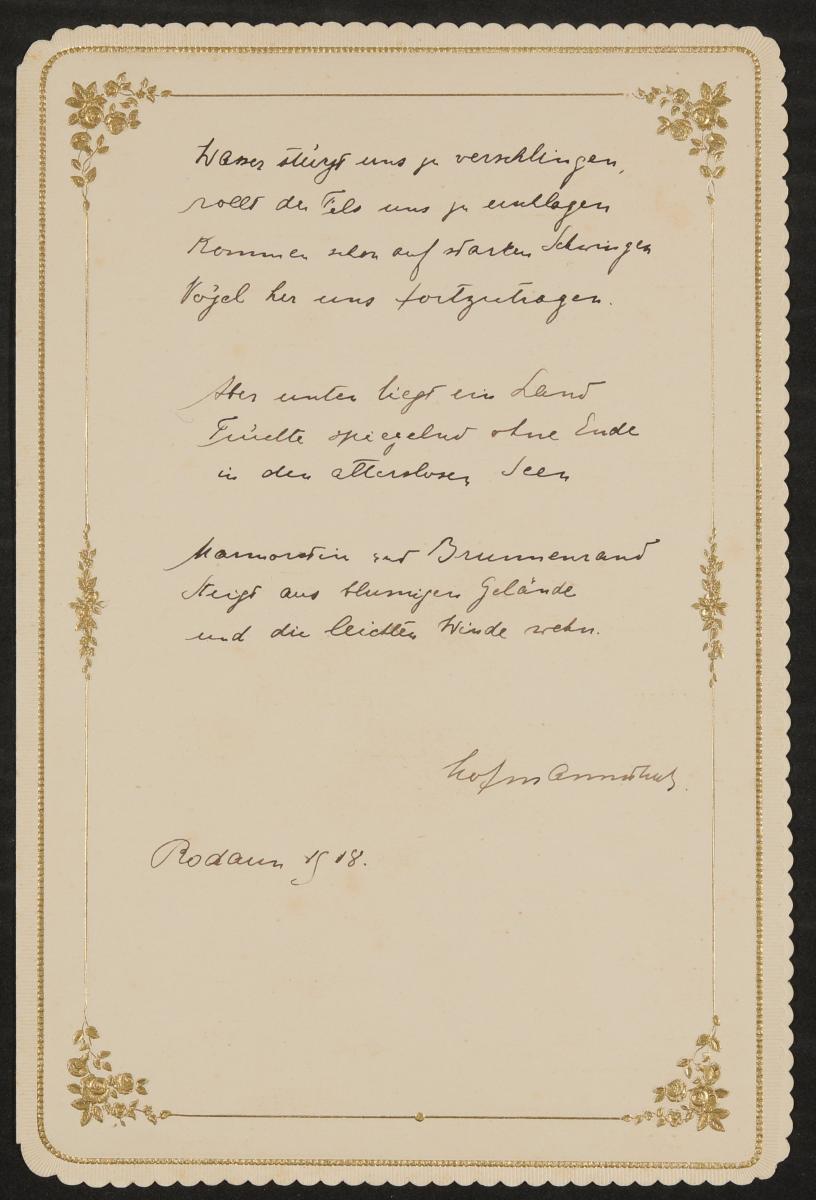 Wasser stürzt uns zu verschlingen,
rollt der Fels uns zu erschlagen
Kommen schon auf starken Schwingen
Vögel her uns fortzutragen.
Aber unten liegt ein Land
Früchte spiegelnd ohne Ende
in den alterslosen Seen
Marmorstirn und Brunnenrand
Steigt aus blumigen Gelände
und die leichten Winde wehn.
Hofmannsthal.
Rodaun 1918.